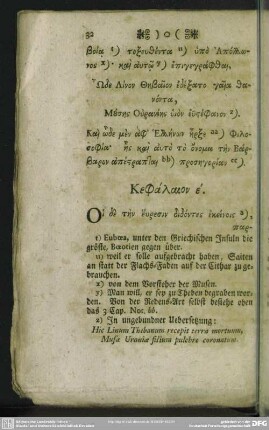 32 ) o (
βοίᾳ t) τοξευθέντα u) ὑπὸ Ἀπόλλω-
νος x). καὶ αὐτῷ y) ἐπιγεγράφθαι,
Ὧδε Λίνον Θηβαῖον ἐδέξατο γαῖα θα-
νόντα,
Μούσης Οὐρανίης υἱὸν ἐϋστέφανον z).
Καὶ ὧδε μὲν ἀφ' Ἑλλήνων ἦρξε aa) Φιλο-
σοφία· ἧς καὶ αὐτὸ τὸ ὄνομα τὴν Βάρ-
βαρον ἀπέστραπται bb) προσηγορίαν cc).
Κεφάλαιον ε'.
Οἱ δὲ τὴν εὕρεσιν διδόντες ἐκείνοις a),
παρ-
t) Euboea, unter den Griechischen Insuln die
gröste, Boeotien gegen über.
u) weil er solle aufgebracht haben, Saiten
an statt der Flachs-Faden auf der Cithar zu ge-
brauchen.
x) von dem Vorsteher der Musen.
y) Man will, er sey zu Theben begraben wor-
den. Von der Redens-Art selbst besiehe oben
das 3 Cap. Not.
z) In ungebundner Uebersetzung:
Hic Linum Thebanum recepit terra mortuum,
Musæ Uraniæ filium pulchre coronatum.